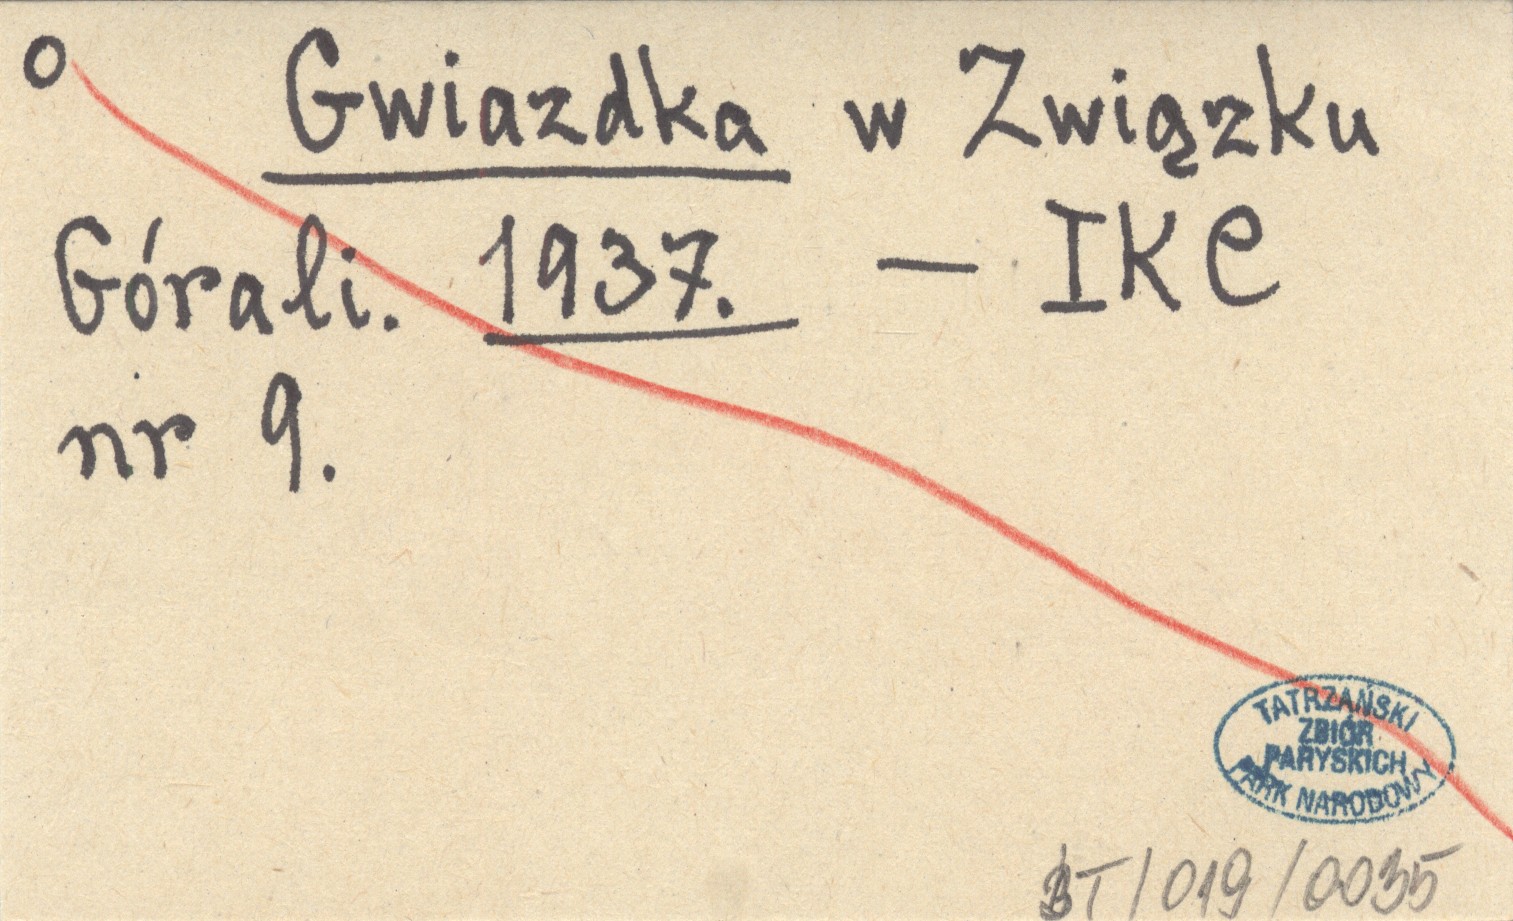 O Gwiazdka w Związku
Górali. 1937. — IKC
nr 9.
TATRZAŃSKI
ZBIÓR
PARYSKICH
PARK NARODOWY
BT/019/0035